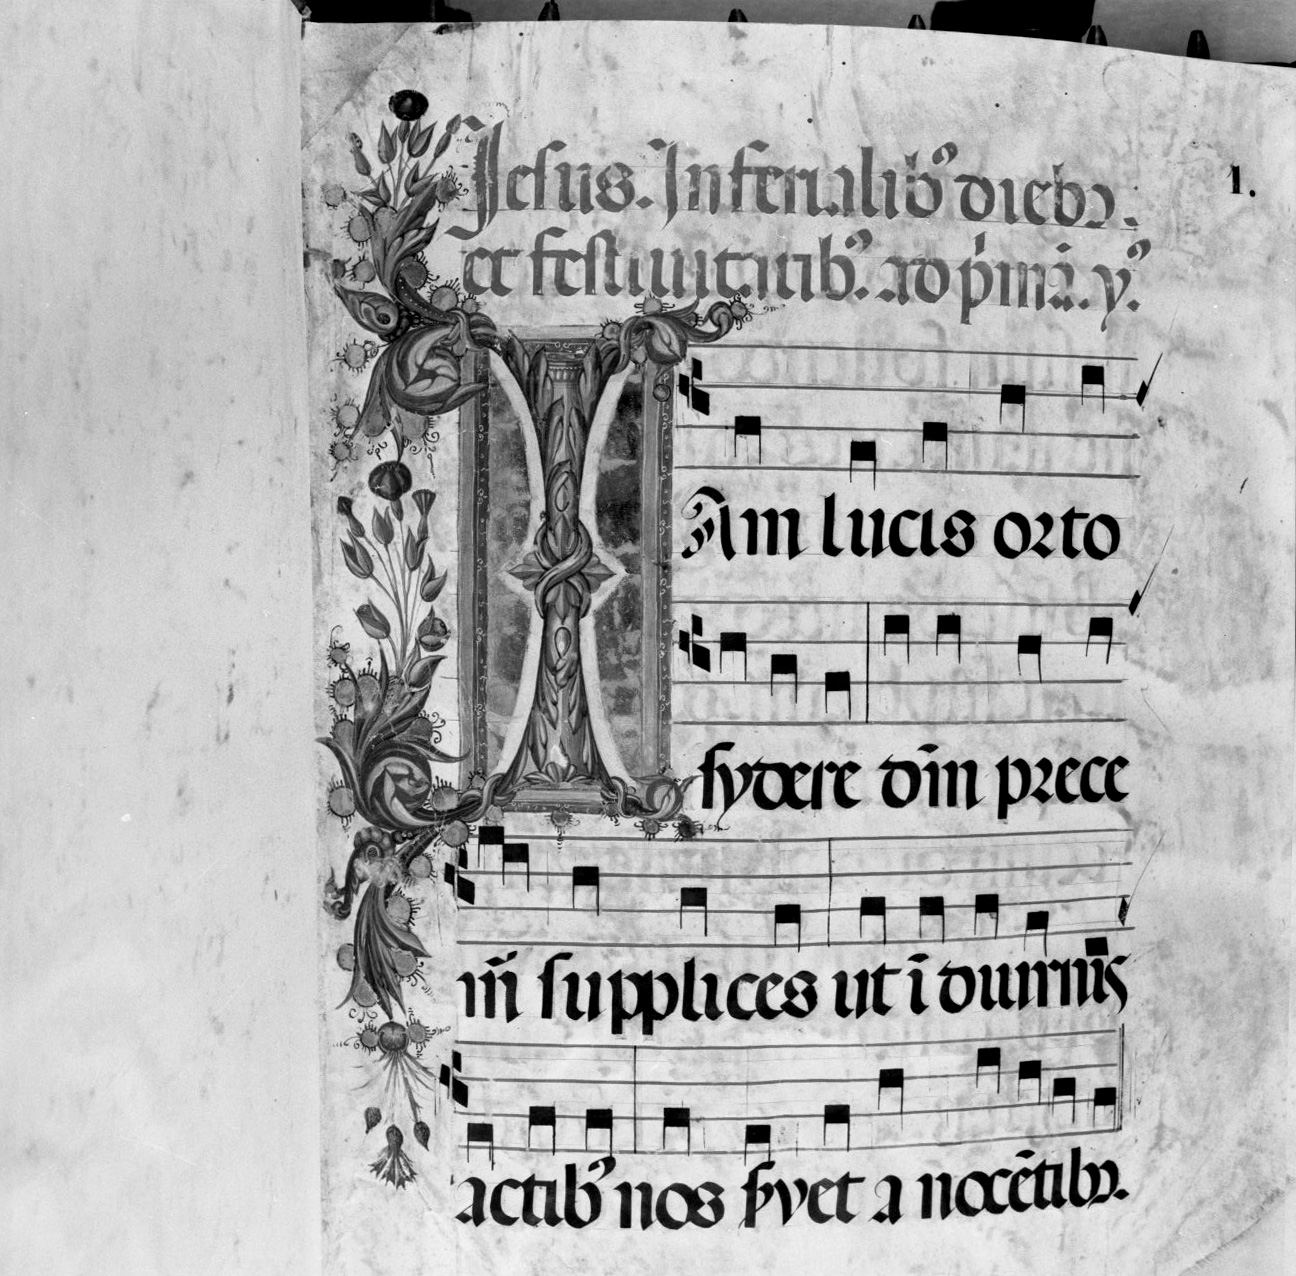 Jesus. In ferialib⁹ dieb⁊.
et festiuitatib⁹. ad p̍mā. y⁹.
1.
IAm lucis orto
sydere dm̄ prece
m̄ supplices ut ī diurnis
actib⁹ nos ẜvet a nocētib⁊.